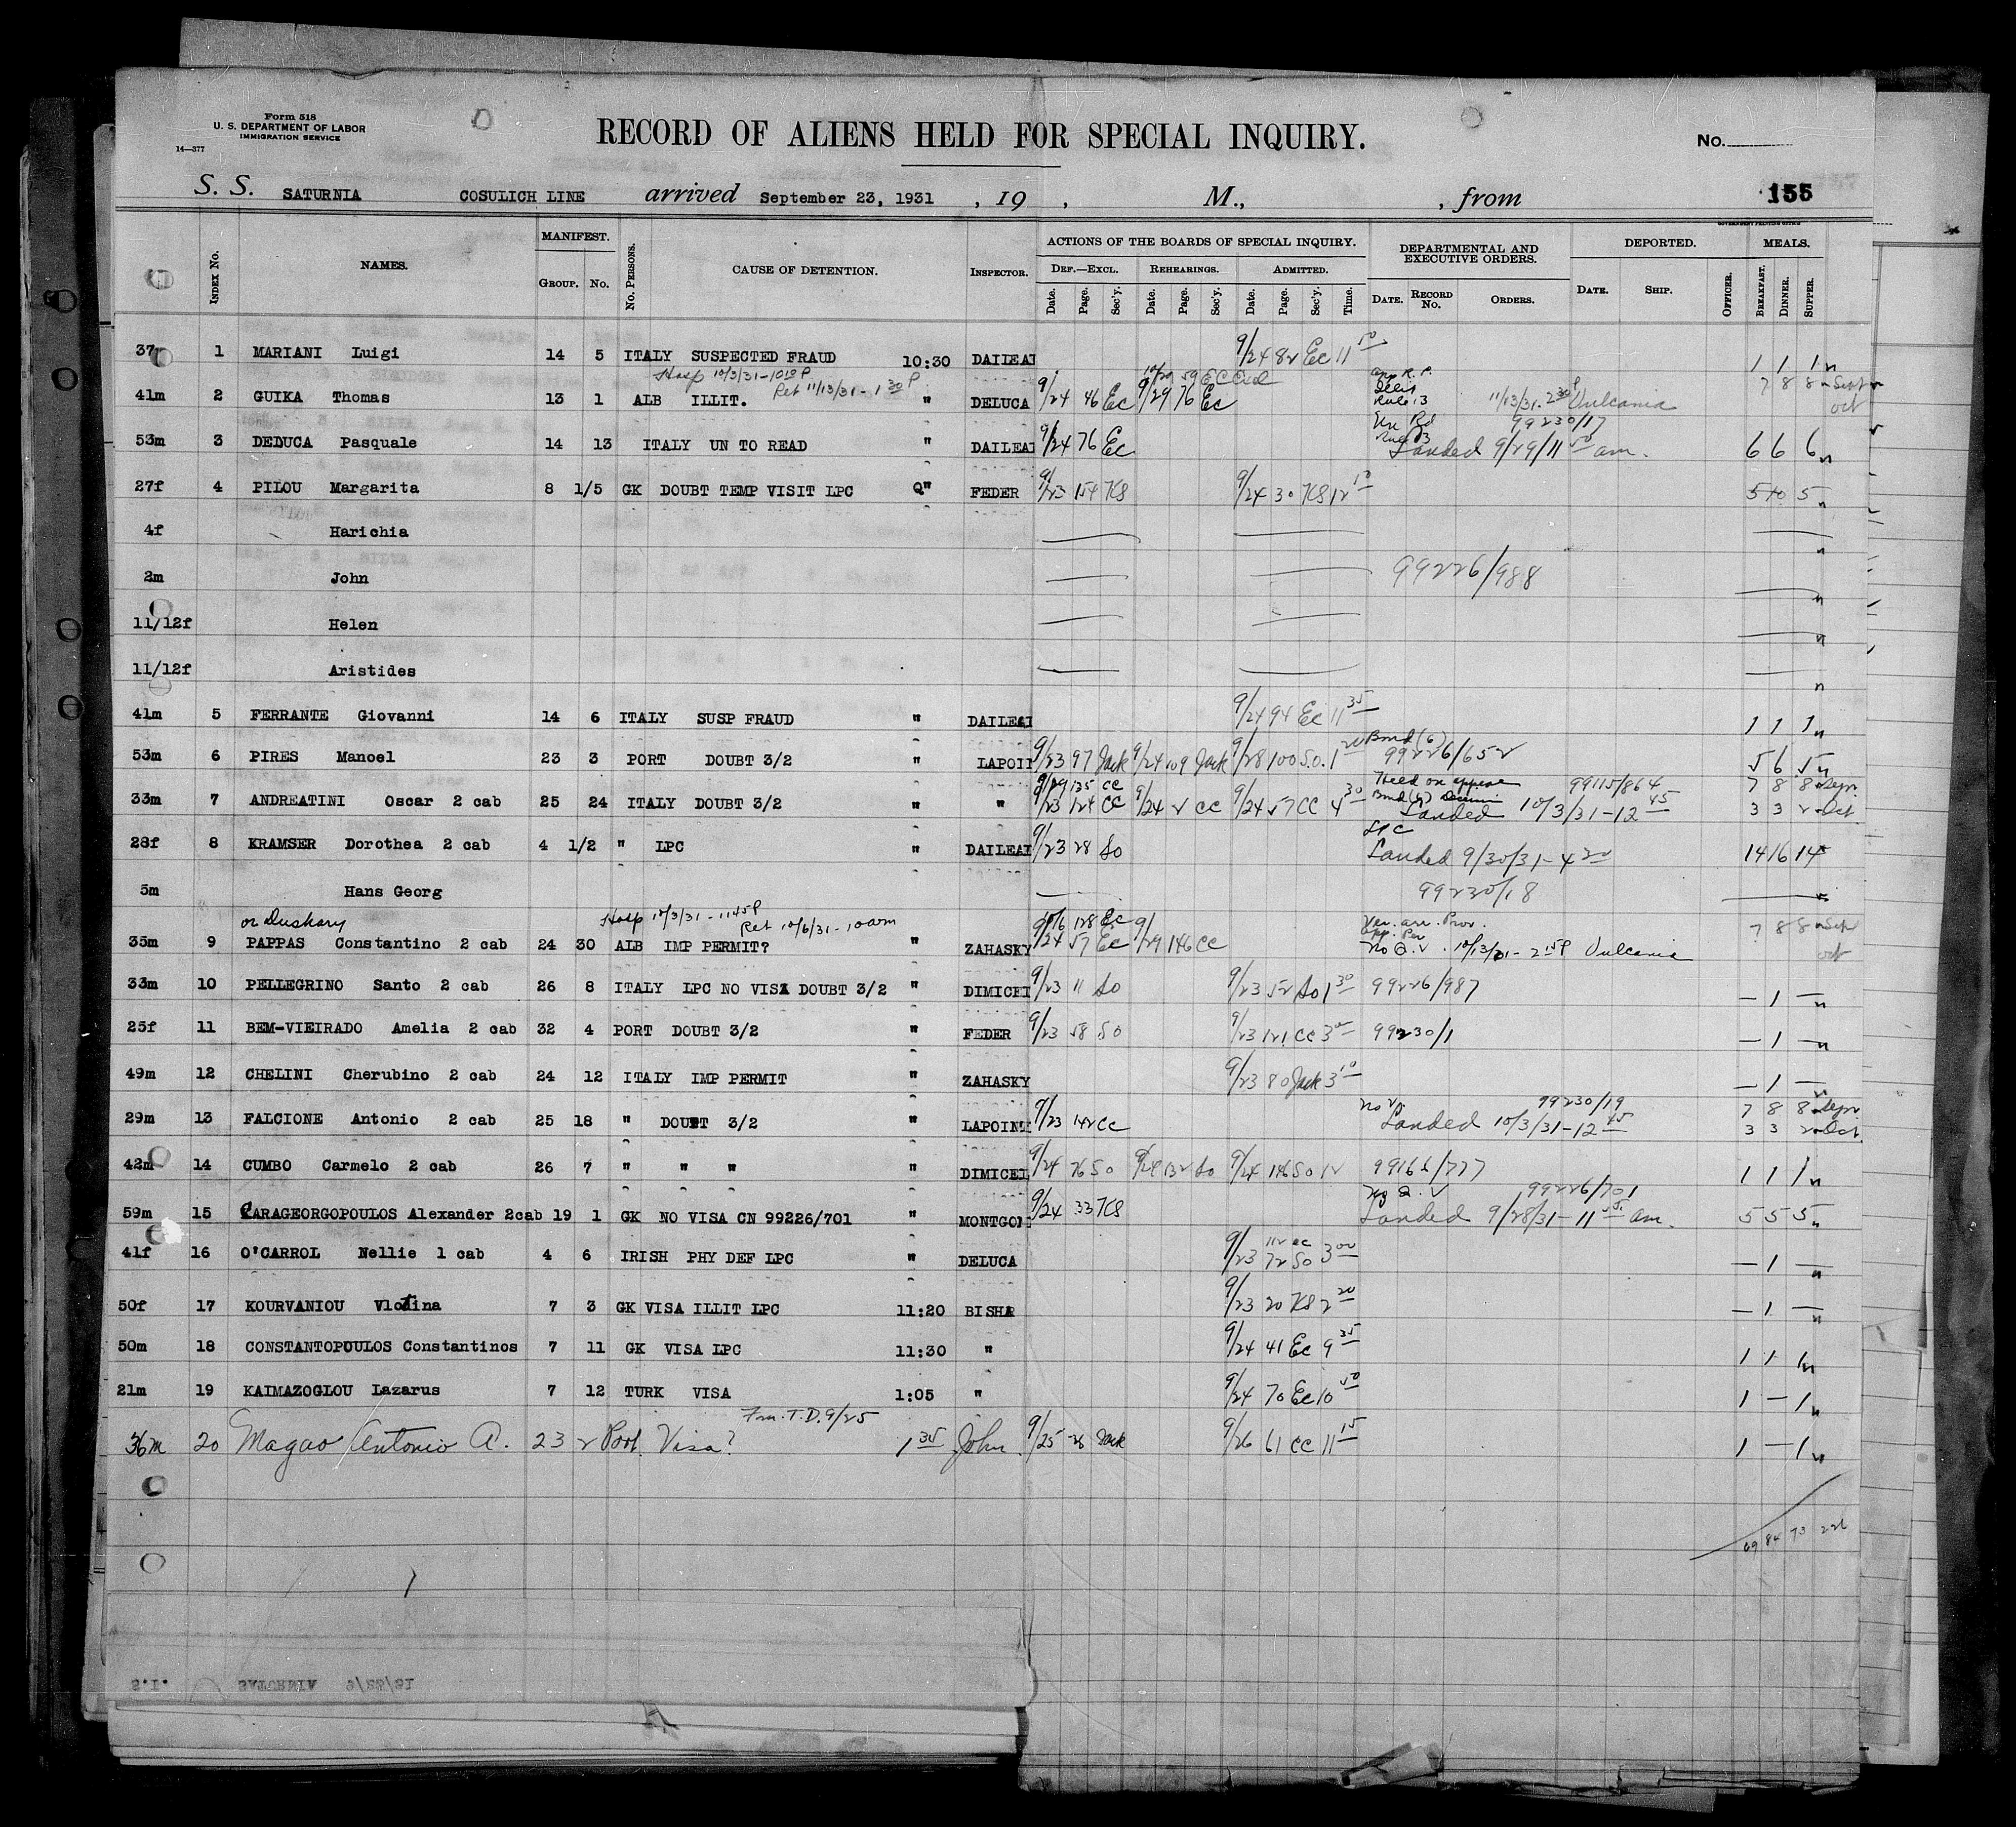 Form 518
U. S. DEPARTMENT OF LABOR
IMMIGRATION SERVICE
14—377
RECORD OF ALIENS HELD FOR SPECIAL INQUIRY.
No.
S. S. SATURNIA COSULICH LINE arrived September 23, 1931 , 19 , M., , from 155
GOVERNMENT PRINTING OFFICE
Index No. NAMES. MANIFEST. Group. No. No. Persons. CAUSE OF DETENTION. Inspector. ACTIONS OF THE BOARDS OF SPECIAL INQUIRY. DEPARTMENTAL AND EXECUTIVE ORDERS. DEPORTED. MEALS.
Def.—Excl. Rehearings. Admitted.
Date. Page. Sec'y. Date. Page. Sec'y. Date. Page. Sec'y. Time. Date. Record No. Orders. Date. Ship. Officer. Breakfast. Dinner. Supper.
37m 1 MARIANI Luigi 14 5 ITALY SUSPECTED FRAUD 10:30 DAILEAD 9/24 82 Ec 11 50 1 1 1
Hosp 10/3/31-10 10 P Ret 11/13/31-1 30 P
41m 2 GUIKA Thomas 13 1 ALB ILLIT. " DELUCA 9/24 46 Ec 9/29 76 Ec Rule 13 11/13/31-2 30 P Vulcania 7 8 8 Sept Oct
99230/17
53m 3 DEDUCA Pasquale 14 13 ITALY UN TO READ " DAILEAD 9/24 76 Ec Landed 9/29/11 50 am. 6 6 6
27f 4 PILOU Margarita 8 1/5 GK DOUBT TEMP VISIT LPC Q" FEDER 9/23 154 KS 9/24 30 KS 12 10 5 10 5
4f Harichia
2m John 99226/988
11/12f Helen
11/12f Aristides
41m 5 FERRANTE Giovanni 14 6 ITALY SUSP FRAUD " DAILEAD 9/24 94 Ec 11 35 1 1 1
53m 6 PIRES Manoel 23 3 PORT DOUBT 3/2 " LAPOII 9/23 97 Jack 9/24 109 Jack 9/28 100 S.O. 1 20 Bond (6) 99226/652 5 6 5
9/29 125 CC Held on appeal 99115/864 7 8 8 Sep.
33m 7 ANDREATINI Oscar 2 cab 25 24 ITALY DOUBT 3/2 " " 9/23 124 CC 9/24 2 CC 9/24 57 CC 4 30 Landed 10/3/31-12 45 3 3 2 Oct.
LPC
28f 8 KRAMSER Dorothea 2 cab 4 1/2 " LPC " DAILEAD 9/23 28 So Landed 9/30/31-4 20 14 16 14
5m Hans Georg 99230/18
or Dushary Hosp 10/3/31-11 45 P Ret 10/6/31-10 am 10/6 128 Ec
35m 9 PAPPAS Constantino 2 cab 24 30 ALB IMP PERMIT? " ZAHASKY 9/24 57 Ec 9/29 146 CC No Q.V. 10/13/31-2 15 P Vulcania 7 8 8 Sept Oct
33m 10 PELLEGRINO Santo 2 cab 26 8 ITALY LPC NO VISA DOUBT 3/2 " DIMICEI 9/23 11 So 9/23 52 So 1 30 99226/987 — 1 —
25f 11 BEM-VIEIRADO Amelia 2 cab 32 4 PORT DOUBT 3/2 " FEDER 9/23 58 So 9/23 121 CC 3 99230/1 — 1 —
49m 12 CHELINI Cherubino 2 cab 24 12 ITALY IMP PERMIT " ZAHASKY 9/23 80 Jack 3 10 — 1 —
No V 99230/19 7 8 8 Sep.
29m 13 FALCIONE Antonio 2 cab 25 18 " DOUBT 3/2 " LAPOINT 9/23 142 CC Landed 10/3/31-12 45 3 3 2 Oct.
42m 14 CUMBO Carmelo 2 cab 26 7 " " " " DIMICEL 9/24 76 So 9/24 132 So 9/24 146 So 12 99166/777 1 1 1
No Q.V 99226/701
59m 15 CARAGEORGOPOULOS Alexander 2cab 19 1 GK NO VISA CN 99226/701 " MONTGOM 9/24 33 KS Landed 9/28/31-11 55 am. 5 5 5
41f 16 O'CARROL Nellie 1 cab 4 6 IRISH PHY DEF LPC " DELUCA 9/23 72 So 3 00 — 1 —
50f 17 KOURVANIOU Vlotina 7 3 GK VISA ILLIT LPC 11:20 BISHA 9/23 20 KS 2 20 — 1 —
50m 18 CONSTANTOPOULOS Constantinos 7 11 GK VISA LPC 11:30 " 9/24 41 Ec 9 35 1 1 1
21m 19 KAIMAZOGLOU Lazarus 7 12 TURK VISA 1:05 " 9/24 70 Ec 10 50 1 — 1
Fm. T.D. 9/25
36m 20 Magao Antonio A. 23 2 Port. Visa? 1 35 John 9/25 26 Jack 9/26 61 CC 11 15 1 — 1
69 84 73 226
S.I. SATURNIA 9/23/31